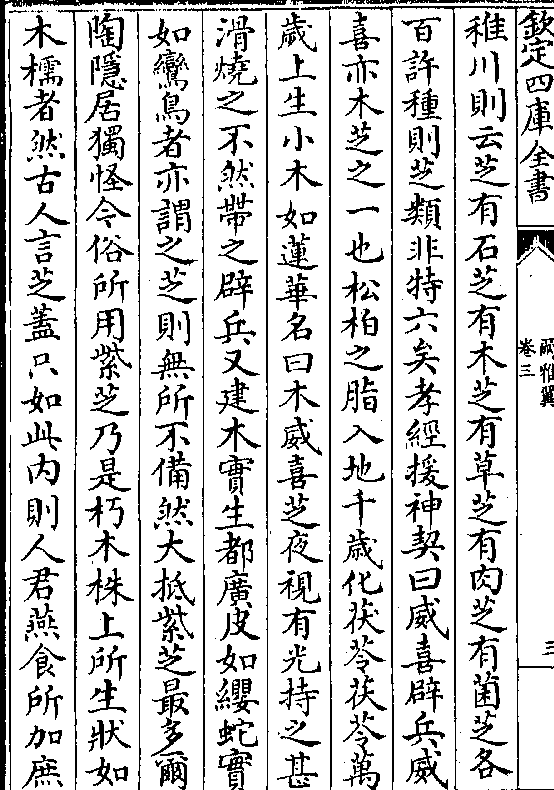 欽定四庫全書
爾雅翼
卷三
三
稚川則云芝有石芝有木芝有草芝有肉芝有菌芝各
百許種則芝類非特六矣孝經援神契曰威喜辟兵威
喜亦木芝之一也松柏之脂入地千歳化茯苓茯苓萬
歳上生小木如蓮華名曰木威喜芝夜視有光持之甚
滑燒之不然帶之辟兵又建木實生都廣皮如纓蛇實
如鸞鳥者亦謂之芝則無所不備然大抵紫芝最多爾
陶隱居獨怪今俗所用紫芝乃是朽木株上所生狀如
木檽者然古人言芝葢只如此内則人君燕食所加庶